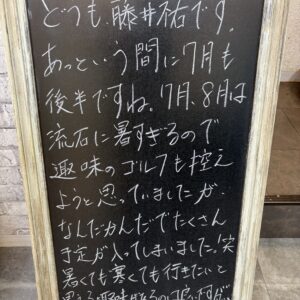 どうも、藤井祐です。
あっという間に7月も
後半ですね。7月、8月は
流石に暑すぎるので
趣味のゴルフも控え
ようと思っていましたが、
なんだかんだでたくさん
予定が入ってしまいました。笑
暑くても寒くても行きたいと
思える趣味があるの